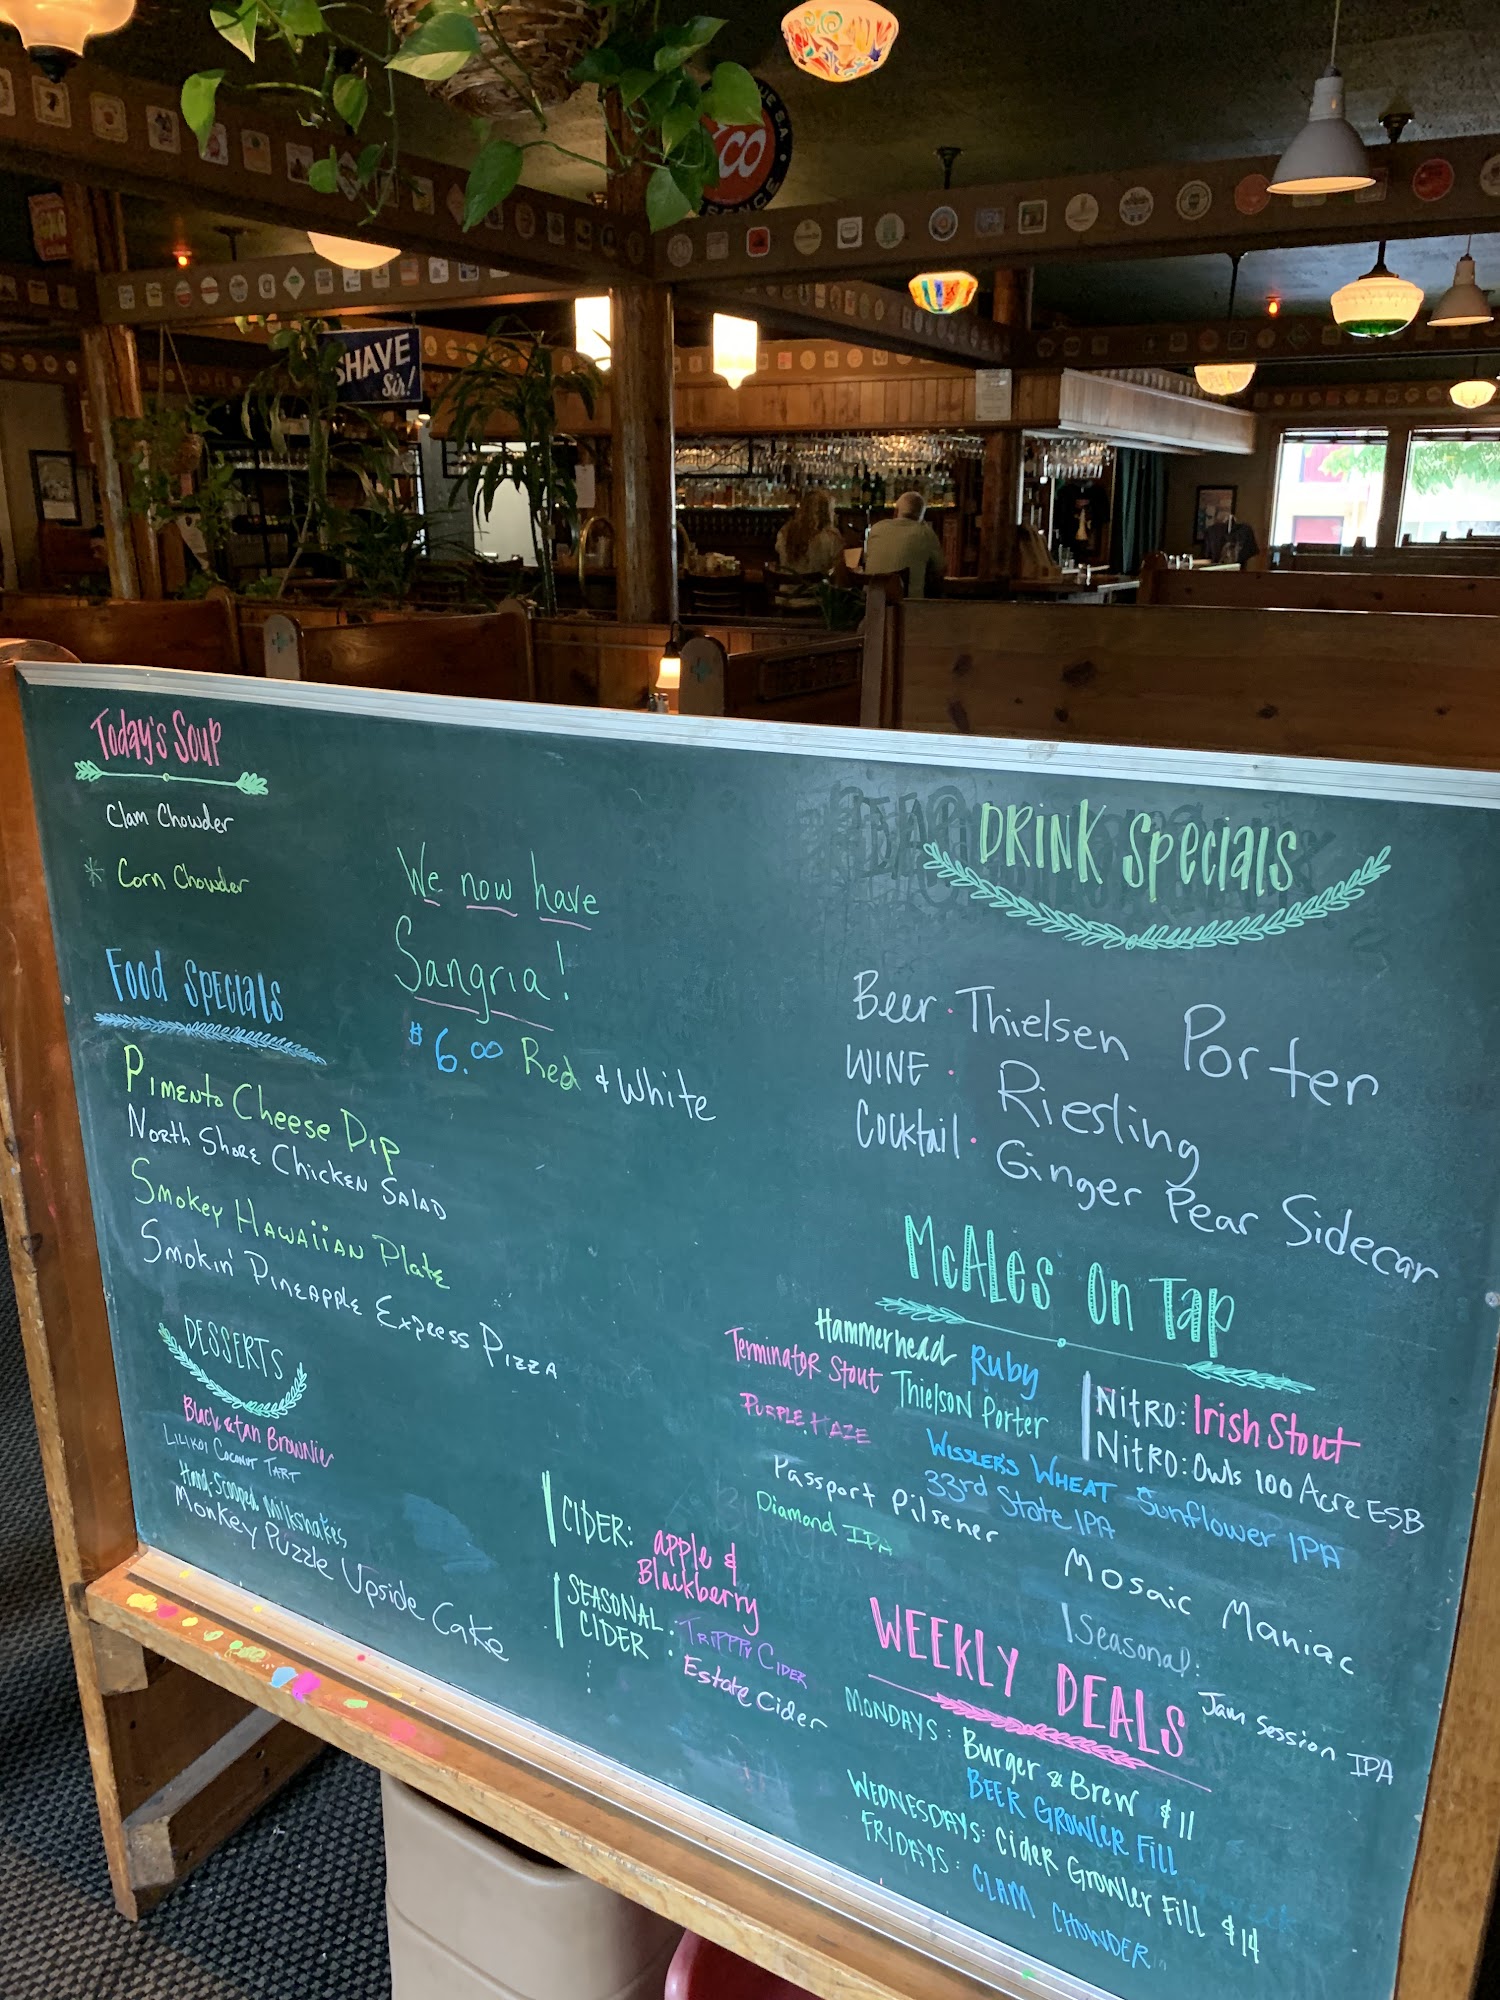 SHAVE
Sir!
Today's Soup
Clam Chowder
* Corn Chowder
We now have
Sangria!
$6.00 Red & White
Food Specials
Pimento Cheese Dip
North Shore Chicken Salad
Smokey Hawaiian Plate
Smokin' Pineapple Express Pizza
DESSERTS
Black & tan Brownie
Lilikoi Coconut Tart
Hand-Scooped Milkshakes
Monkey Puzzle Upside Cake
CIDER: apple &
Blackberry
SEASONAL
CIDER :
Tripppy Cider
Estate Cider
DRINK Specials
Beer · Thielsen Porter
WINE · Riesling
Cocktail · Ginger Pear Sidecar
McALES On Tap
Hammerhead Ruby
Terminator Stout Thielson Porter
Purple Haze
Wissler's Wheat Sunflower IPA
Passport Pilsener 33rd State IPA
Diamond IPA
Mosaic Maniac
Nitro: Irish Stout
Nitro: Owls 100 Acre ESB
Seasonal:
Jam Session IPA
WEEKLY DEALS
MONDAYS: Burger & Brew $11
BEER GROWLER FILL
WEDNESDAYS: Cider Growler Fill $14
FRIDAYS: CLAM CHOWDER